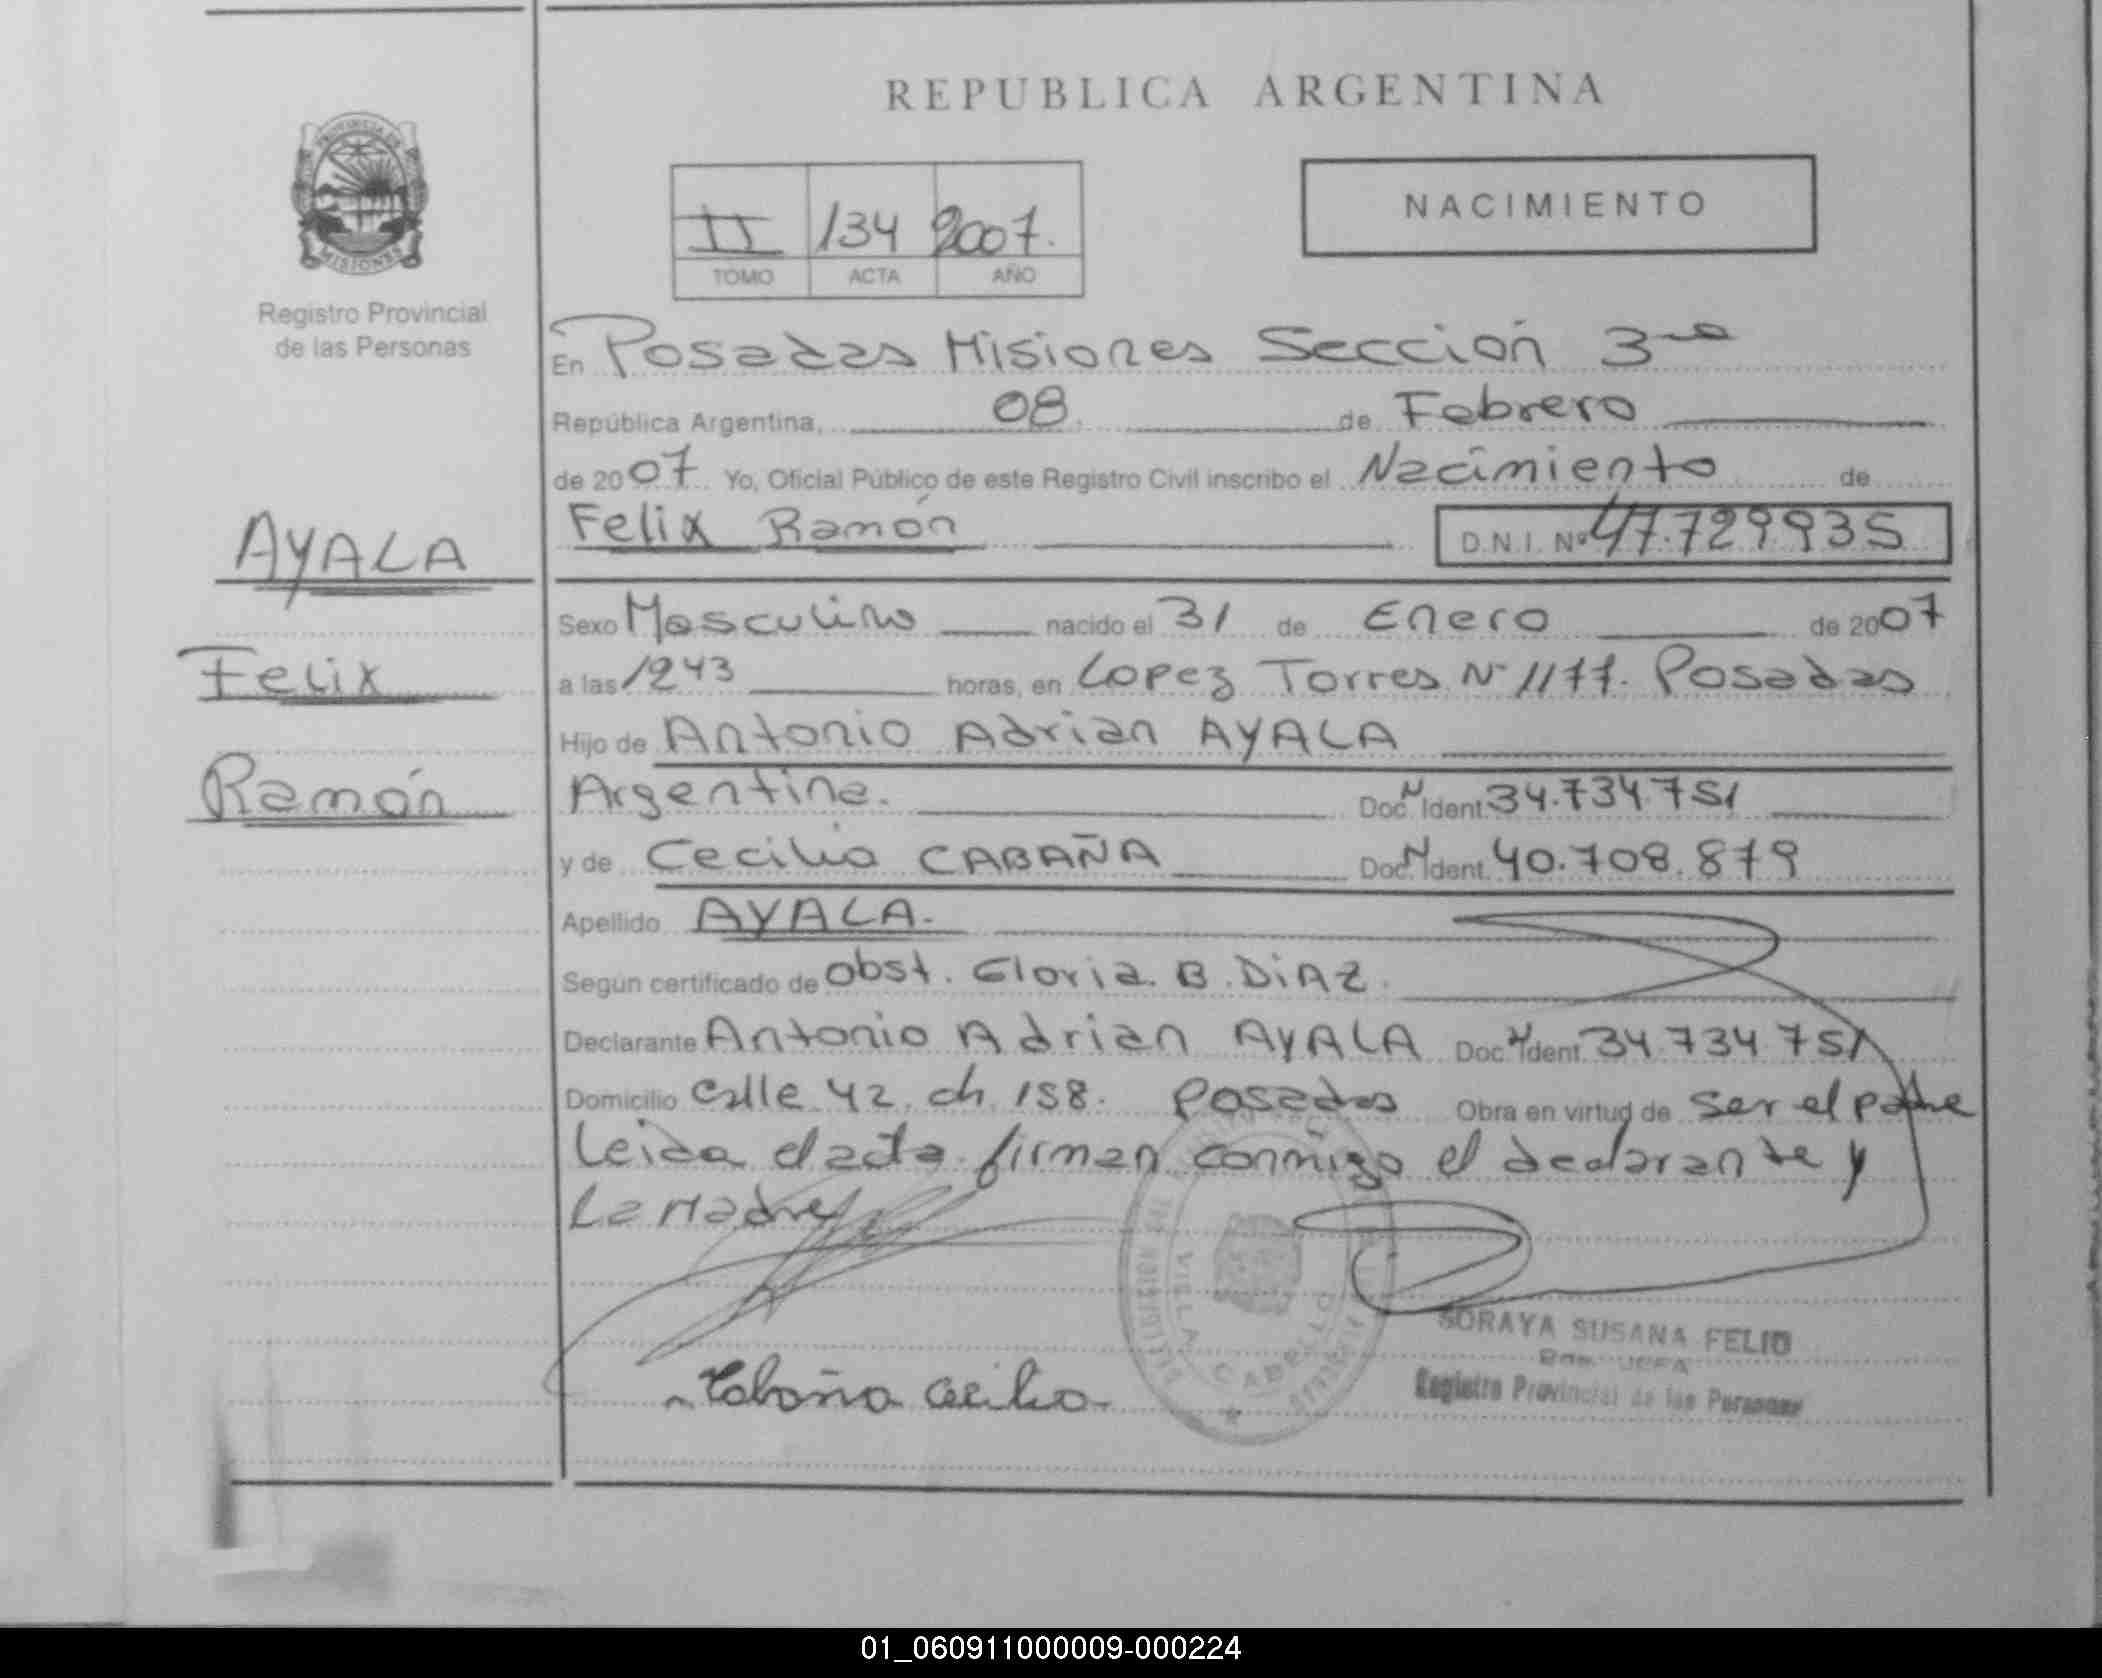 REPUBLICA ARGENTINA
PROVINCIA DE
MISIONES
Registro Provincial
de las Personas
II 134 2007.
TOMO ACTA AÑO
NACIMIENTO
En Posadas Misiones Sección 3ra
República Argentina, 08 de Febrero
de 2007 Yo, Oficial Público de este Registro Civil inscribo el Nacimiento de
Felix Ramón D.N.I. Nº 47.729935
AYALA
Felix
Ramón
Sexo Masculino nacido el 31 de Enero de 2007
a las 1243 horas, en Lopez Torres Nº 1177. Posadas
Hijo de Antonio Adrian AYALA
Argentina. Doc. N Ident. 34.734.751
y de Cecilia CABAÑA Doc. N Ident. 40.708.879
Apellido AYALA.
Según certificado de Obst. Gloria. B. DiAZ.
Declarante Antonio Adrian AYALA Doc. N Ident. 34.734 751
Domicilio Calle 42. ch. 158. Posadas Obra en virtud de ser el padre
Leida el acta firman conmigo el declarante y
La Madre
Cabaña Cecilia
VILLA CABELLO
SORAYA SUSANA FELIU
JEFA
Registro Provincial de las Personas
01_060911000009-000224